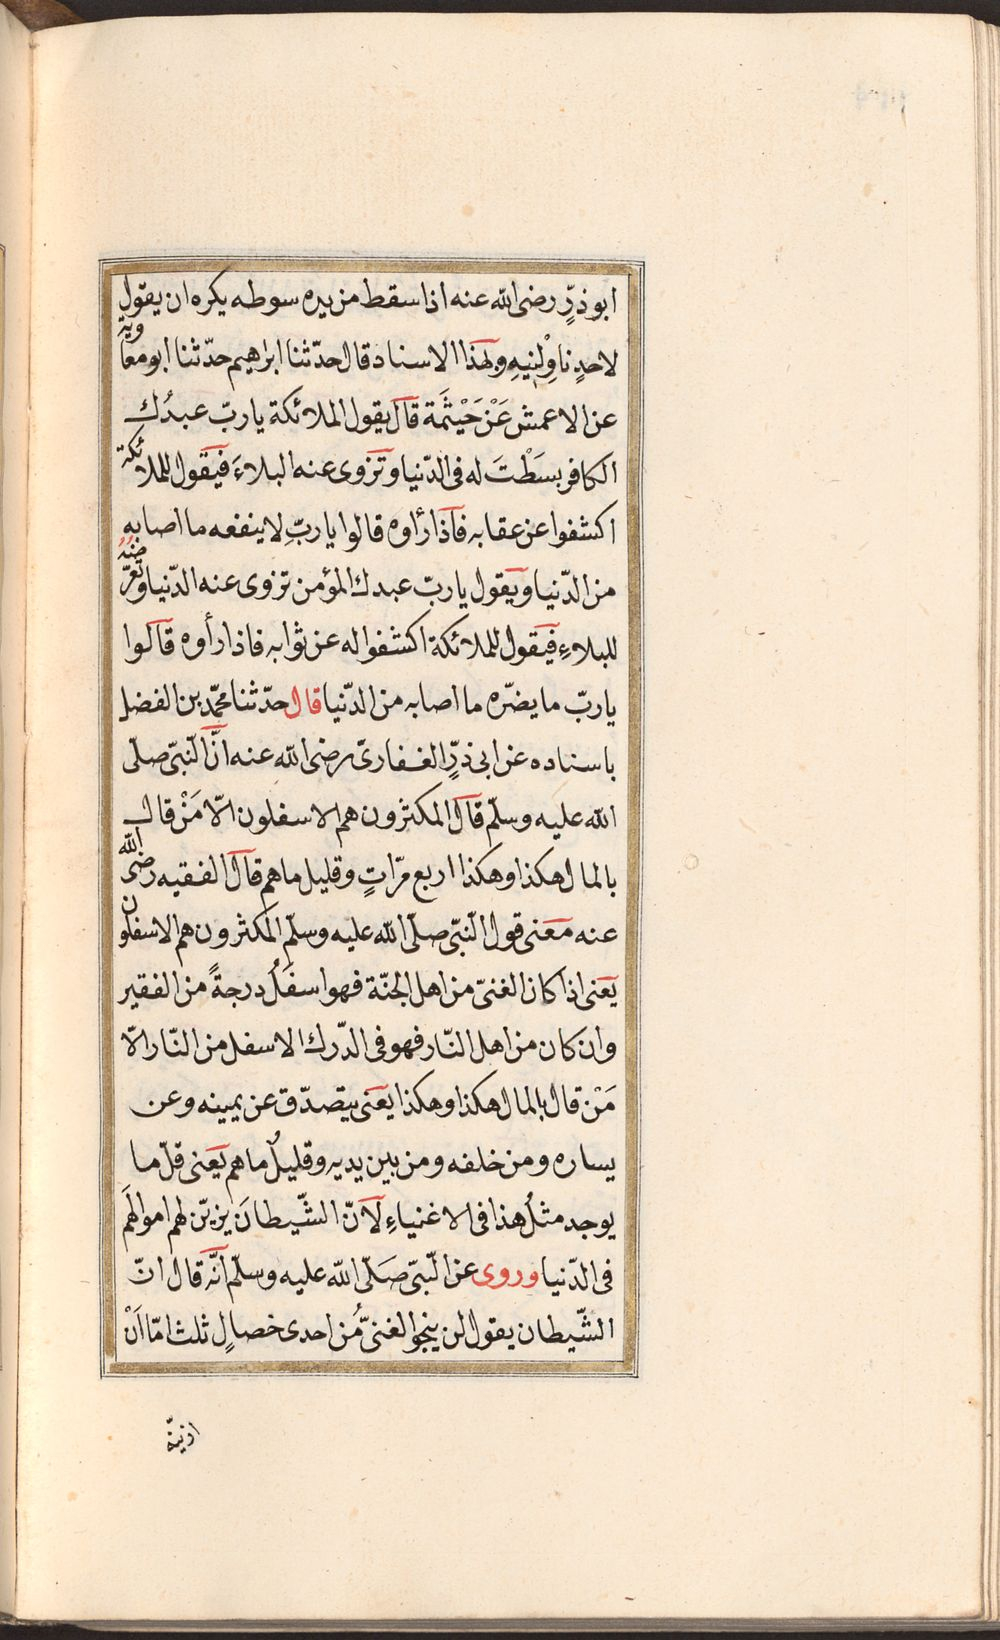 ابو ذرٍّ رضى الله عنه اذا سقط من يده سوطه يكره ان يقول
لاحدٍ ناوِلْنيهِ وبهٰذا الاسناد قال حدّثنا ابراهيم حدّثنا ابو معاوية
عن الاعمش عَنْ خَيْثَمَة قال يقول الملائكة يا ربّ عبدُك
الكافر بسَطْتَ له فى الدّنيا وتزوى عنه البلاءَ فيقول للملائكة
اكشفوا عن عقابه فاذا رأوه قالوا يا ربِّ لا ينفعه ما اصابه
من الدّنيا ويقول يا ربّ عبدك المؤمن تزوى عنه الدّنيا وتعرّضه
للبلاءِ فيقول للملائكة اكشفوا له عن ثوابه فاذا رأوه قالوا
يا ربّ ما يضرّه ما اصابه من الدّنيا قال حدّثنا محمّد بن الفضل
باسناده عن ابى ذرٍّ الغفارىّ رضى الله عنه انّ النّبىّ صلّى
الله عليه وسلّم قال المكثرون هم الاسفلون الّا مَنْ قال
بالمال هكذا وهكذا اربع مرّاتٍ وقليل ما هم قال الفقيه رضى الله
عنه معنى قول النّبىّ صلّى الله عليه وسلّم المكثرون هم الاسفلون
يعنى اذا كان الغنىّ من اهل الجنّة فهو اسفَلُ درجةً من الفقير
وان كان من اهل النّار فهو فى الدّرك الاسفل من النّار الّا
مَنْ قال بالمال هكذا وهكذا يعنى يتصدّق عن يمينه وعن
يساره ومن خلفه ومن بين يديه وقليلٌ ما هم يعنى قلّ ما
يوجد مثلُ هذا فى الاغنياءِ لانّ الشّيطانَ يزيّن لهم اموالهَم
فى الدّنيا وروى عن النّبىّ صَلّى الله عليه وسلّم انّه قال انّ
الشّيطان يقول لن ينجوا الغنىُّ من احدى خصالٍ ثلث امّا اَنْ
ازيّنه